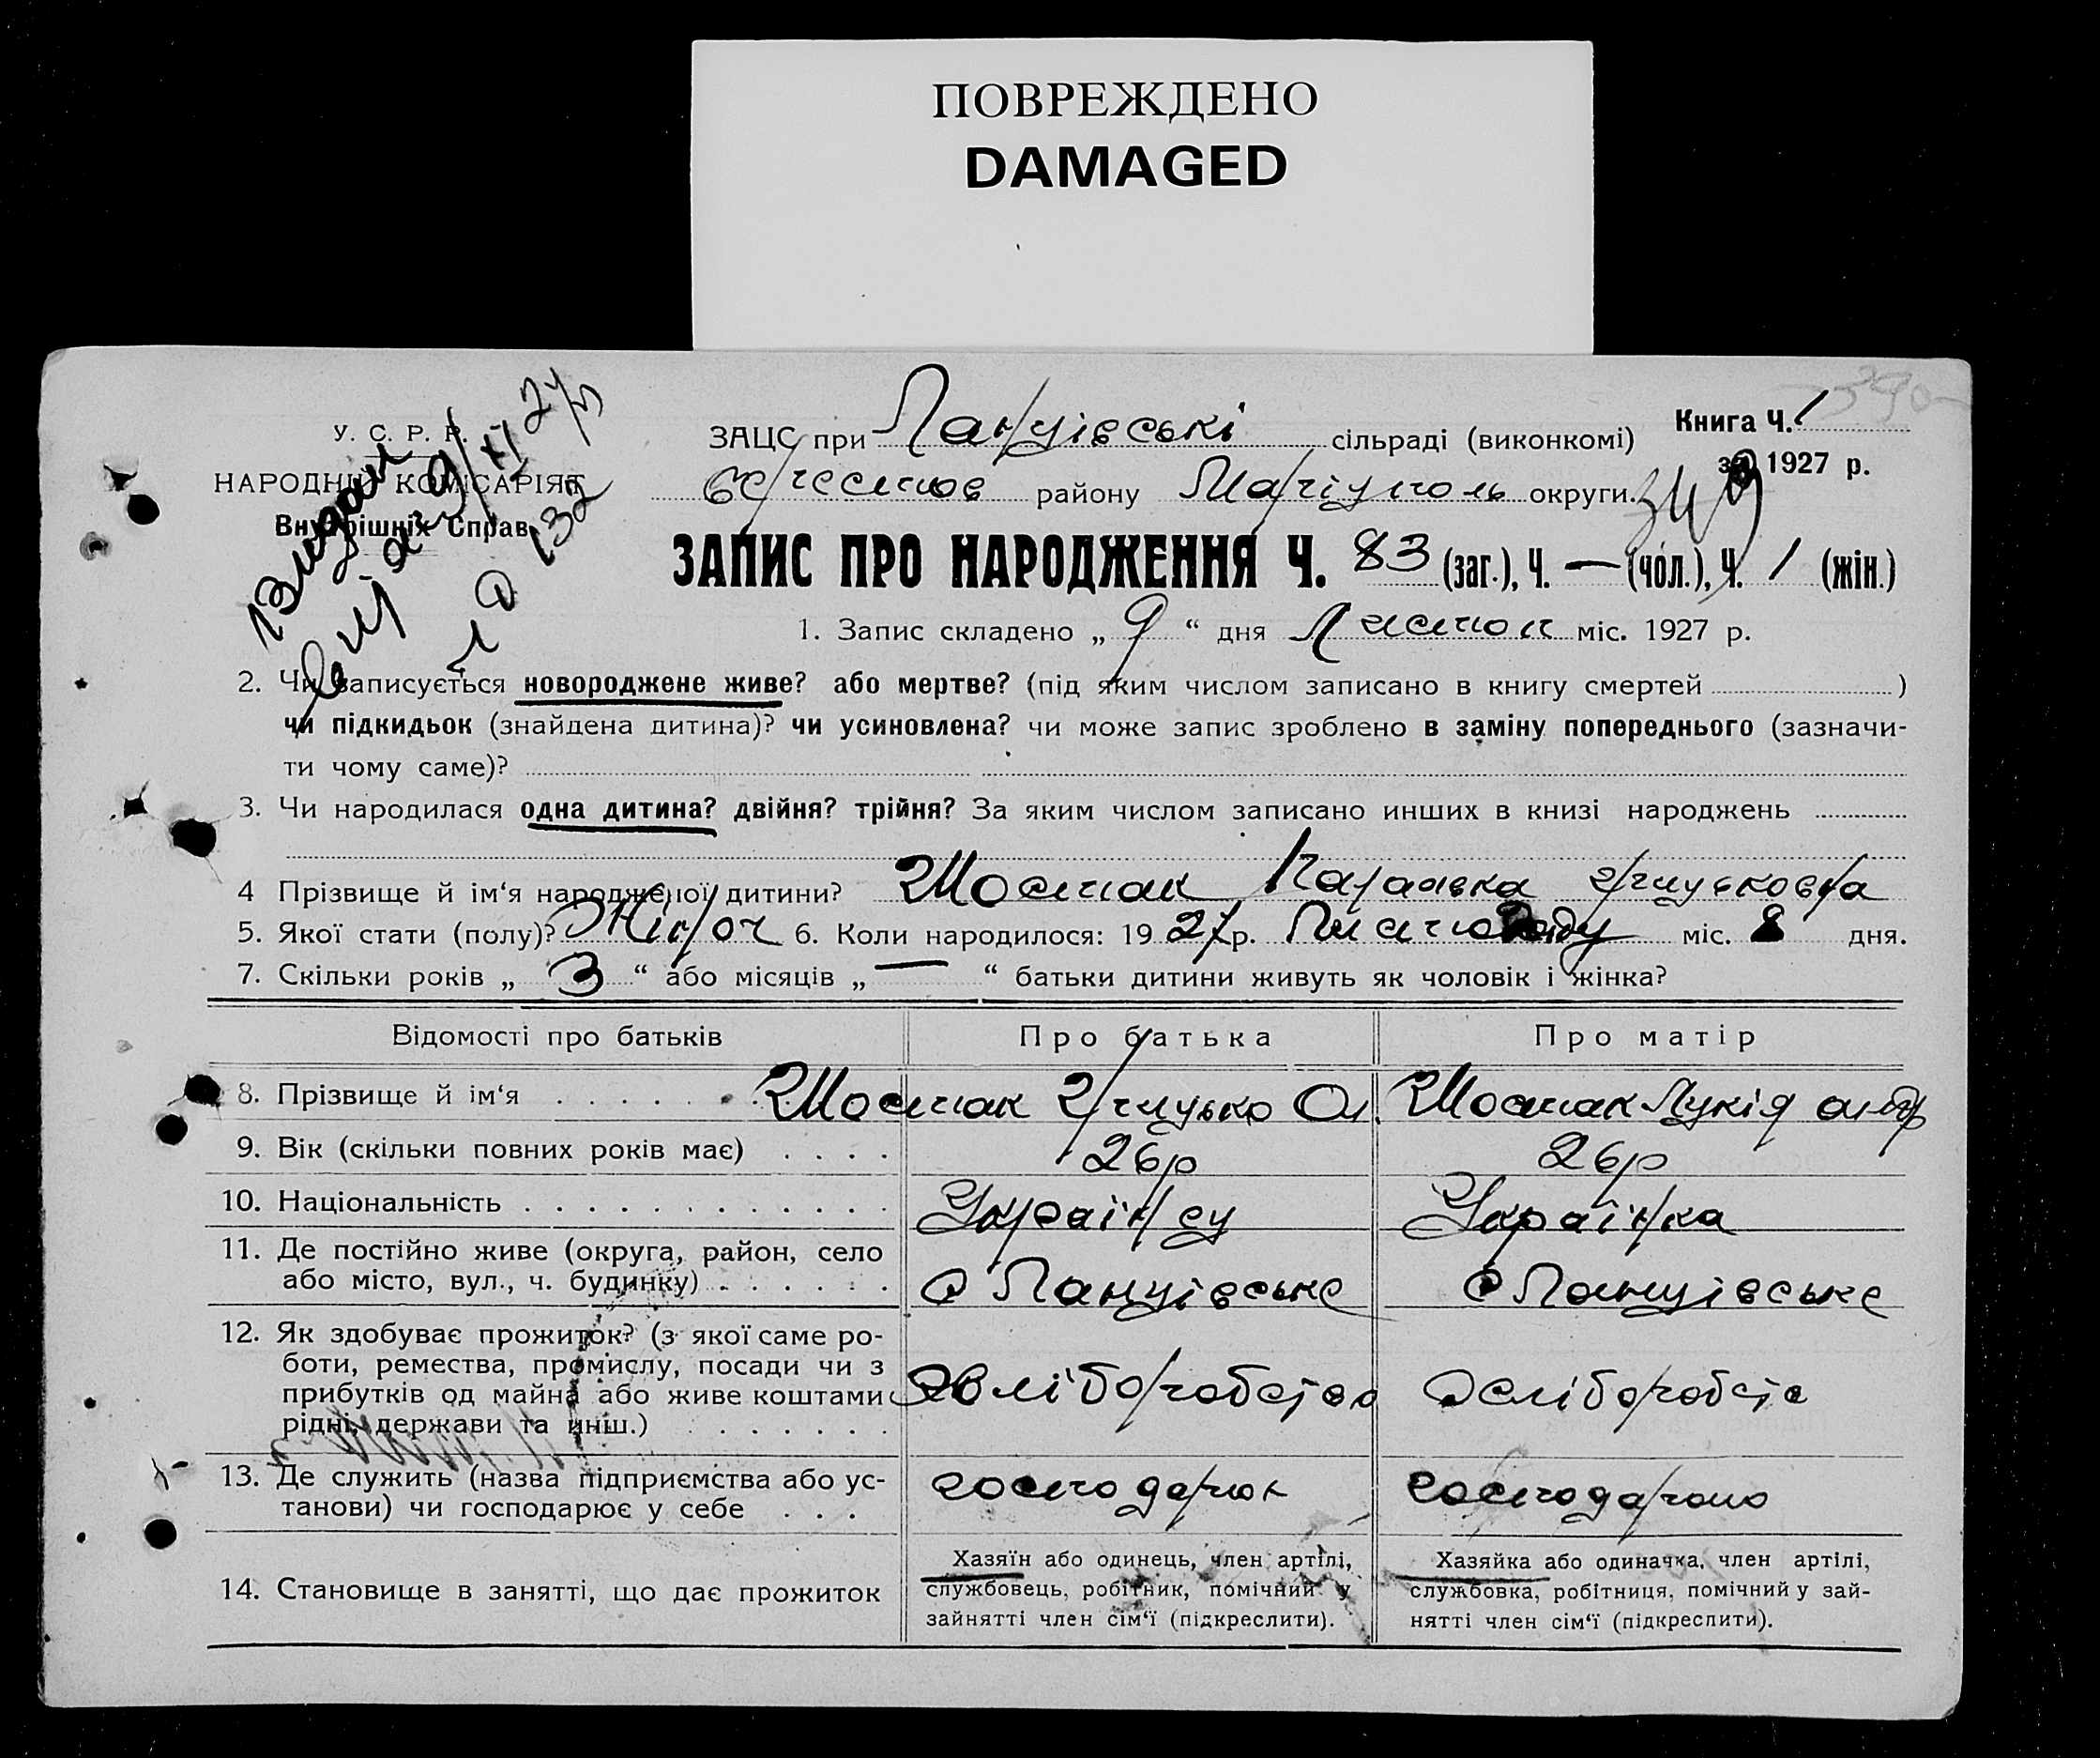 ПОВРЕЖДЕНО
DAMAGED
У. С. Р. Р.
НАРОДНІЙ КОМІСАРІЯТ
Внутрішніх Справ
Видан
ЗАЦС при Ланцівські сільраді (виконкомі)
Книга Ч. 1
за 1927 р.
району Маріуполь округи.
ЗАПИС ПРО НАРОДЖЕННЯ Ч. 83 (заг.), Ч. — (чол.), Ч. 1 (жін.)
1. Запис складено „ 9 “ дня Листоп міс. 1927 р.
2. Чи записується новороджене живе? або мертве? (під яким числом записано в книгу смертей )
чи підкидьок (знайдена дитина)? чи усиновлена? чи може запис зроблено в заміну попереднього (зазначи-
ти чому саме)?
3. Чи народилася одна дитина? двійня? трійня? За яким числом записано инших в книзі народжень
4 Прізвище й ім‘я народженої дитини? Шостак Параска Грицьковна
5. Якої стати (полу)? Жіноч 6. Коли народилося: 1927 р. Листопаду міс. 8 дня.
7. Скільки років „ 3 “ або місяців „ — “ батьки дитини живуть як чоловік і жінка?
Відомості про батьків Про батька Про матір
8. Прізвище й ім‘я Шостак Грицько Ол. Шостак Лукія андр
9. Вік (скільки повних років має) 26р 26р
10. Національність Украінец Украінка
11. Де постійно живе (округа, район, село
або місто, вул., ч. будинку) с Ланцівське с Ланцівське
12. Як здобуває прожиток? (з якої саме ро-
боти, ремества, промислу, посади чи з
прибутків од майна або живе коштами
рідні, держави та инш.) хліборобство хліборобств
13. Де служить (назва підприємства або ус-
танови) чи господарює у себе господарюе господарюю
14. Становище в занятті, що дає прожиток
Хазяїн або одинець, член артілі,
службовець, робітник, помічний у
зайнятті член сім‘ї (підкреслити).
Хазяйка або одиначка, член артілі,
службовка, робітниця, помічний у зай-
нятті член сім‘ї (підкреслити).